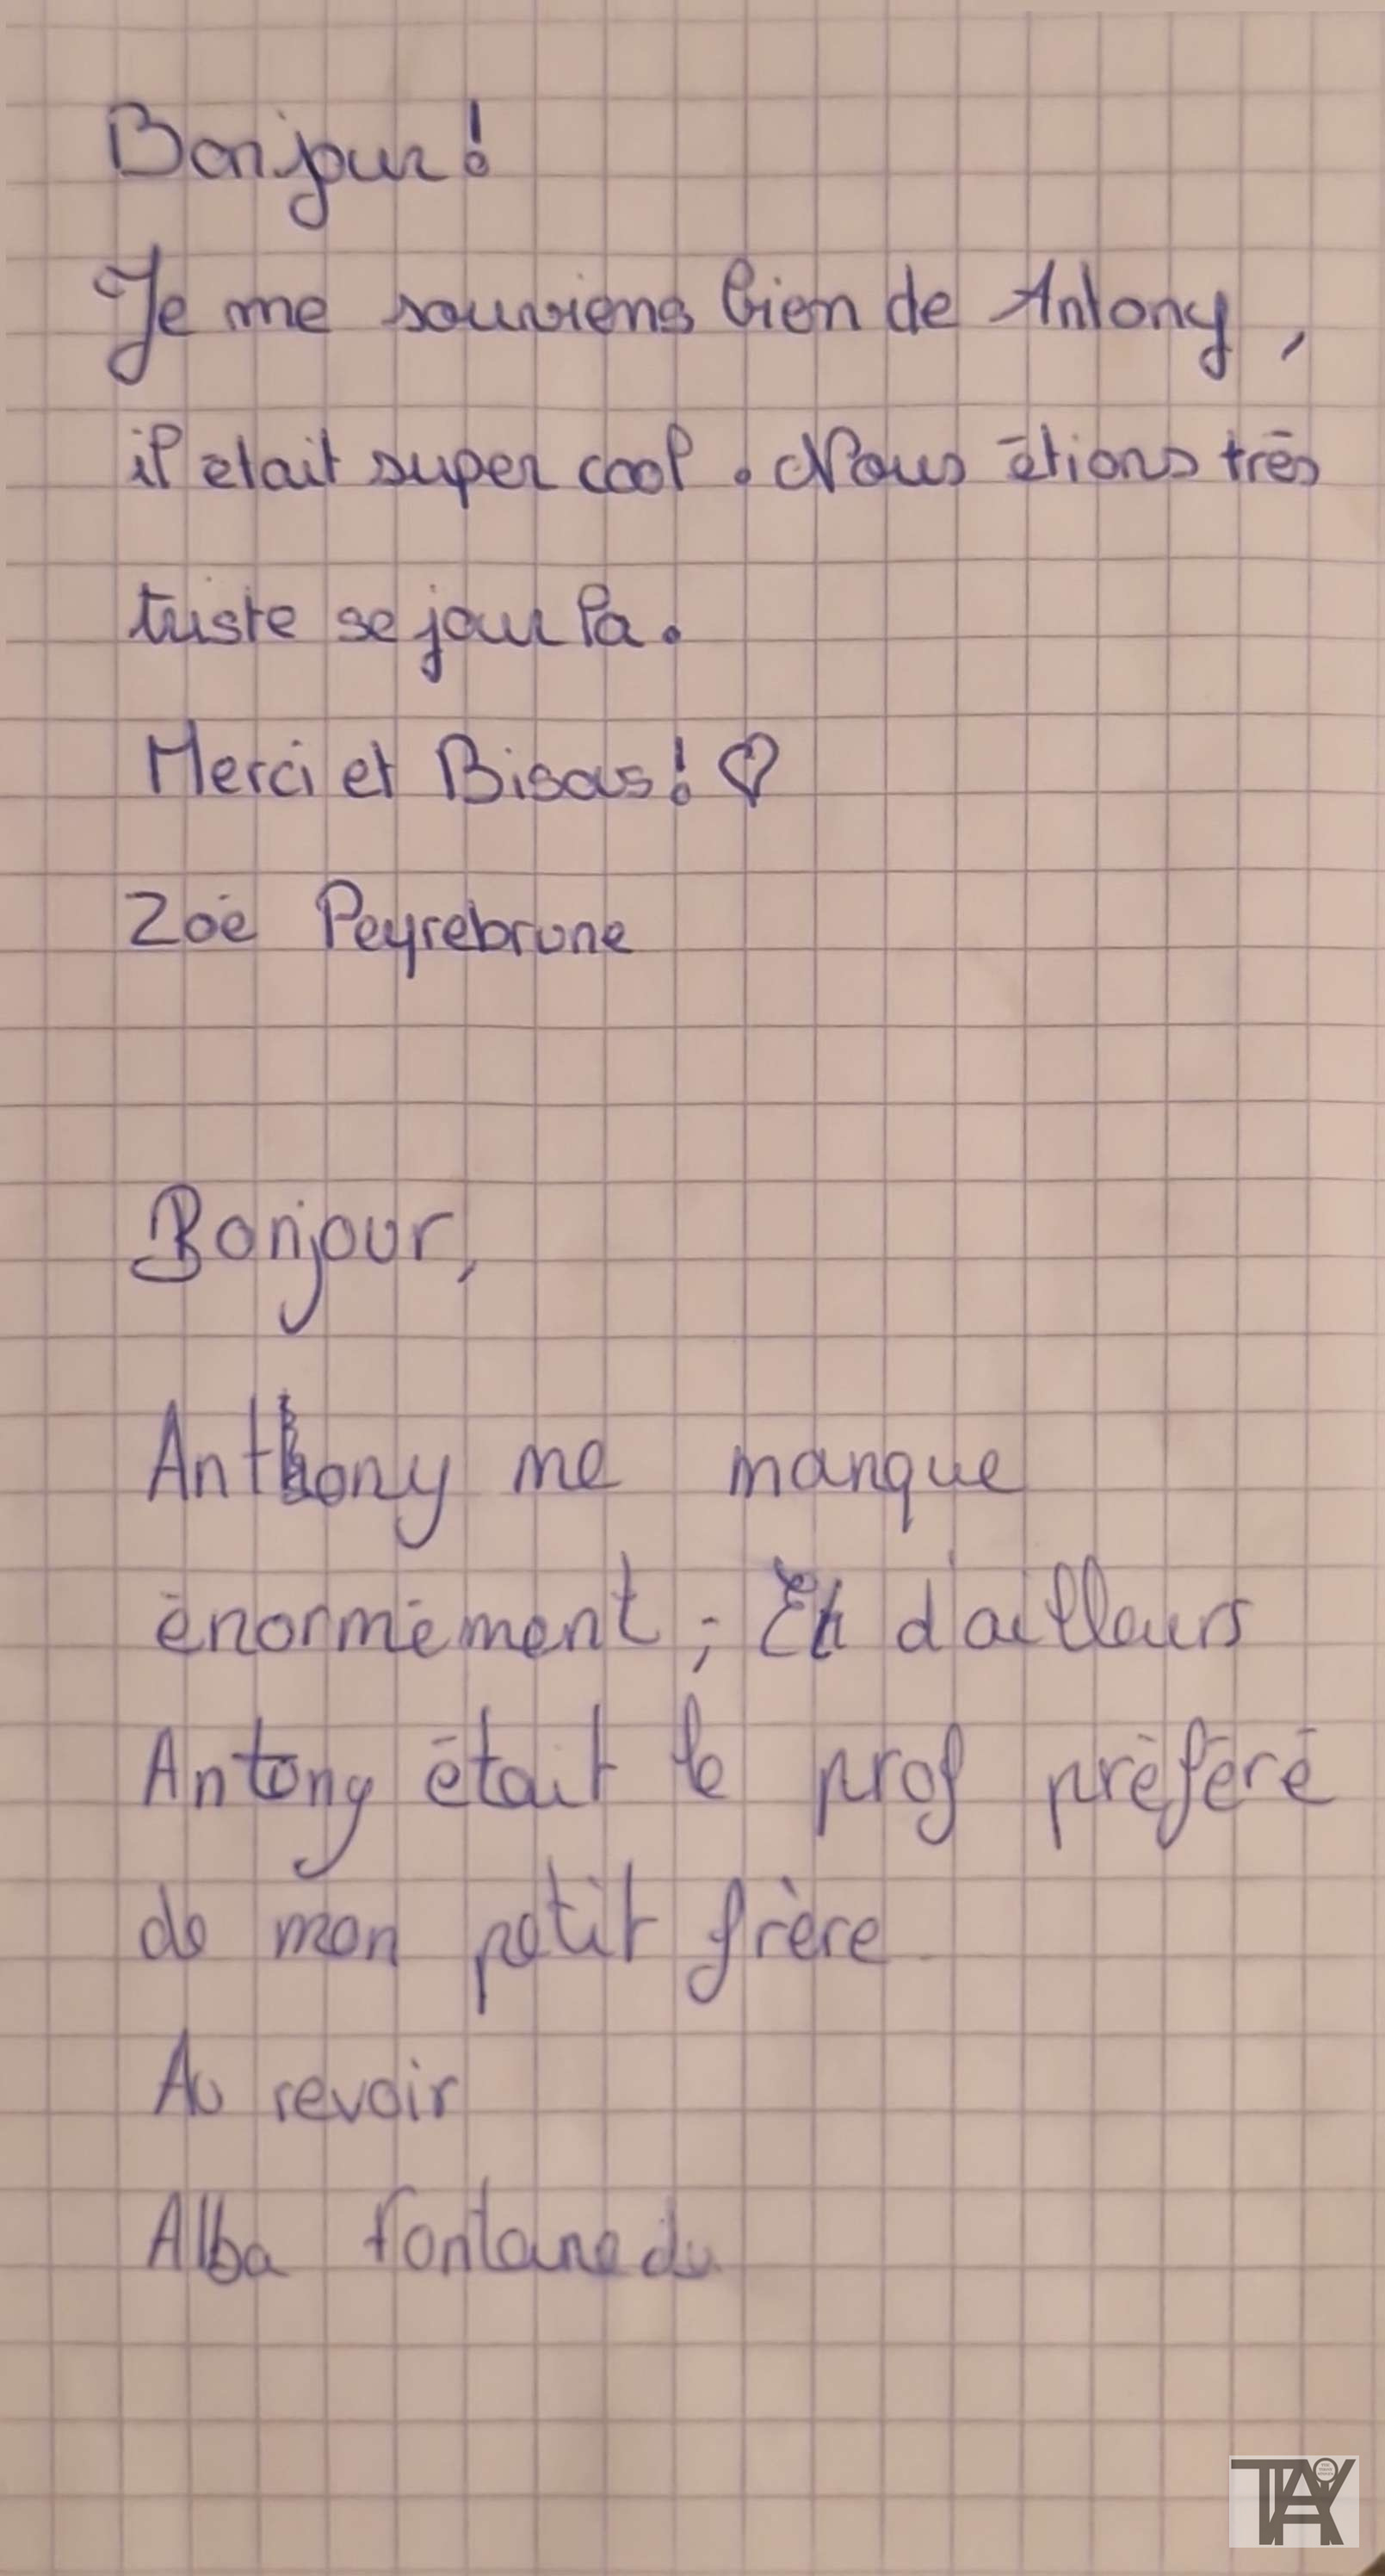 Bonjour !
Je me souviens bien de Antony,
il etait super cool. Nous étions très
triste se jour la.
Merci et Bisous ! ♡
Zoé Peyrebrune
Bonjour,
Anthony me manque
énormément ; Et d'ailleurs
Antony était le prof préféré
de mon petit frère
Au revoir
Alba
TAY